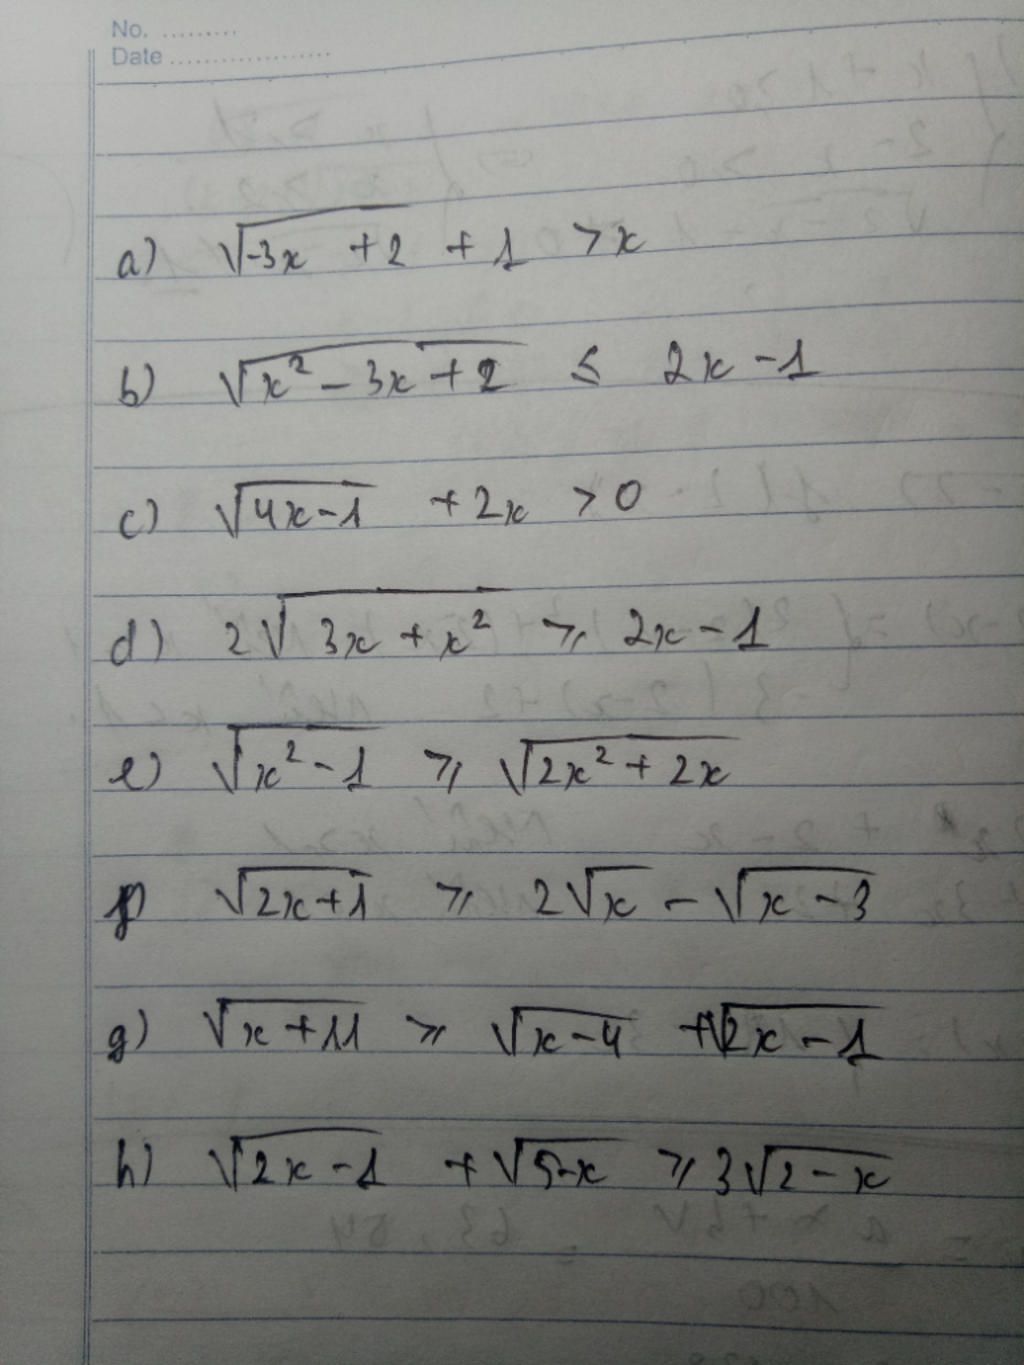 No. .........
Date ...................
a) √(-3x + 2) + 1 > x
b) √(x² - 3x + 2) ≤ 2x - 1
c) √(4x - 1) + 2x > 0
d) 2√(3x + x²) ≥ 2x - 1
e) √(x² - 1) ≥ √(2x² + 2x)
f) √(2x + 1) ≥ 2√x - √(x - 3)
g) √(x + 11) ≥ √(x - 4) + √(2x - 1)
h) √(2x - 1) + √(5 - x) ≥ 3√(2 - x)